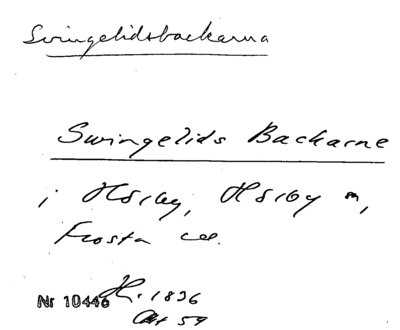 Svingelidsbackarna
Swingelids Backarne
i Hörby, Hörby m,
Frosta
Nr 10446 H. 1836
Akt 59